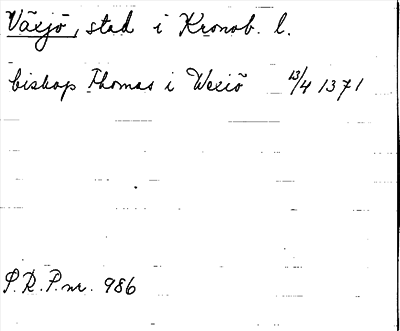 Växjö, stad i Kronob. l.
biskop Thomas i Wexiö 13/4 1371
P.R.P. nr. 986